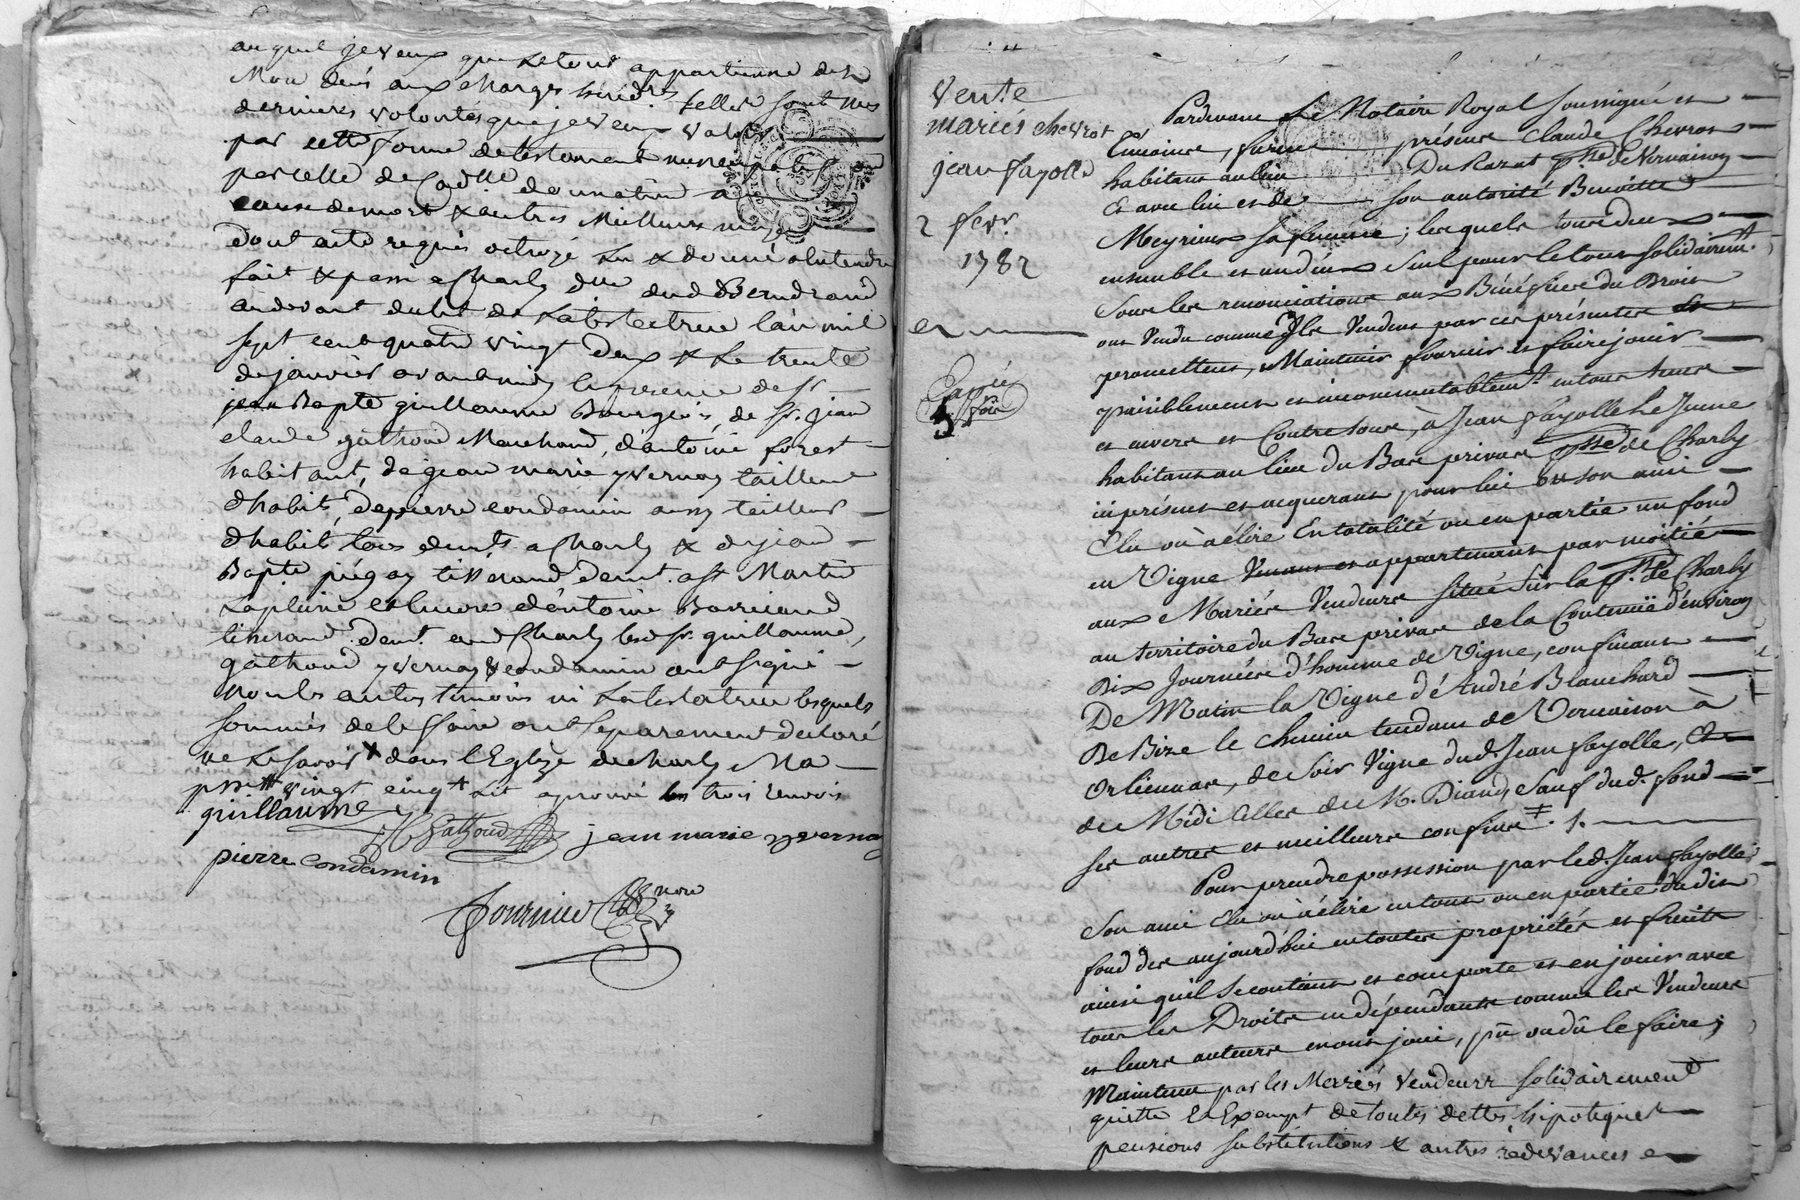 auquel je veux que le tout appartienne des
Mon déés aux charges hered.res telles sont mes
dernieres volontés que je veux valoir
par cette forme de testament
par celle de codlle donnation a
cause de mort & autres Meilleurs
dont acte requis octroyé lu & donné a entendre
fait & passé a Charly
au devant du lit de la testatrice l'an mil
sept cent quatre vingt deux & le trente
de janvier avant midy En presence de Sr
jean Bapte guillaume Bourgeois, de Sr. jean
claude gathoud Marchand, d'antoine forest
habitant, de jean marie yvernay tailleur
d'habit, de pierre condamin aussy tailleur
d'habit tous demts a Charly & de jean
Bapte tisserand demt. a St Martin
tisserand demt. aud Charly lesd Sr. guillaume,
gathoud yvernay & condamin ont signé
non les autres temoins ni la testatrice lesquels
sommés de le faire ont separement declaré
ne le savoir + dans l'Eglize de charly
vingt cinq + lit aprouvé les trois renvois
guillaume
Gathoud jean marie yvernay
pierre condamin
fournier nore
Vente
mariés chevrot
jean fayolle
2 fevr.
1782
Pardevant Le Notaire Royal soussigné et
témoins, furent présens Claude Chevrot
habitant au lieu Du Razat psse de Vernaison
Et avec lui et de son autorité Benoitte
Meyrieux sa femme; lesquels tous deux
ensemble et un d'eux seul pour le tout solidairemt.
Sous les renonciations aux Bénéfices du Droit
ont Vendu comme Ils Vendent par ces présentes et
promettent, Maintenir fournir et faire jouir
paisiblement et incommutablemt. en tous tems
et envers et Contre tous, à Jean fayolle le Jeune
habitant au lieu du Bas privas psse de Charly
ici présent et acquerant pour lui ou son ami
Elu ou à élire En totalité ou en partie un fond
en Vigne Venant et appartenant par moitié
aux Mariés Vendeurs situé sur la psse de Charly
au territoire du Bas privas de la Contenüe d'environ
Dix Journées d'homme de Vigne, confinant
De Matin la Vigne d'André Blanchard
De Bize le chemin tendant de Vernaison à
Orlienas, de soir Vigne dud. Jean fayolle, Et
de Midi Celles de M. Diany Sauf dud. fond
ses autres et meilleurs confins ‡. /.
Pour prendre possession par led. Jean fayolle;
Son ami Elu ou à élire en tout ou en partie dudit
fond des aujourd'hui en toutes propriétés et fruits
ainsi quil se contient et comporte et en jouir avec
tous les Droits en dépendants comme les Vendeurs
et leurs auteurs en ont joui, pû ou dû le faire;
Maintenu par les Marriés Vendeurs solidairement
quitte Et Exempt de toutes dettes hipoteques
pensions substitutions & autres redevances